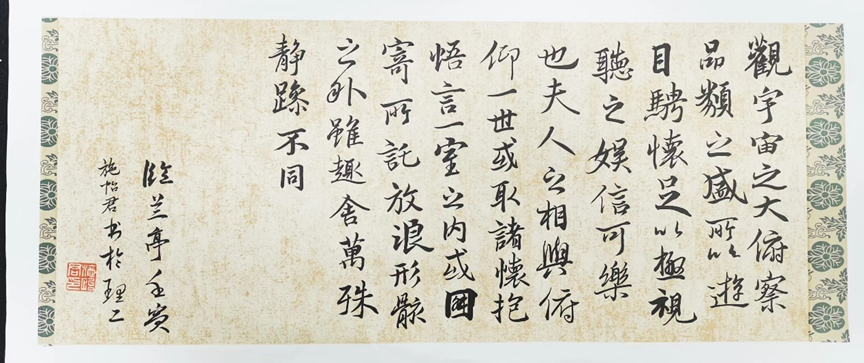 觀宇宙之大俯察
品類之盛所以遊
目騁懷足以極視
聽之娱信可樂
也夫人之相與俯
仰一世或取諸懷抱
悟言一室之内或因
寄所託放浪形骸
之外雖趣舍萬殊
静躁不同
臨兰亭壬寅
施怡君书於理工